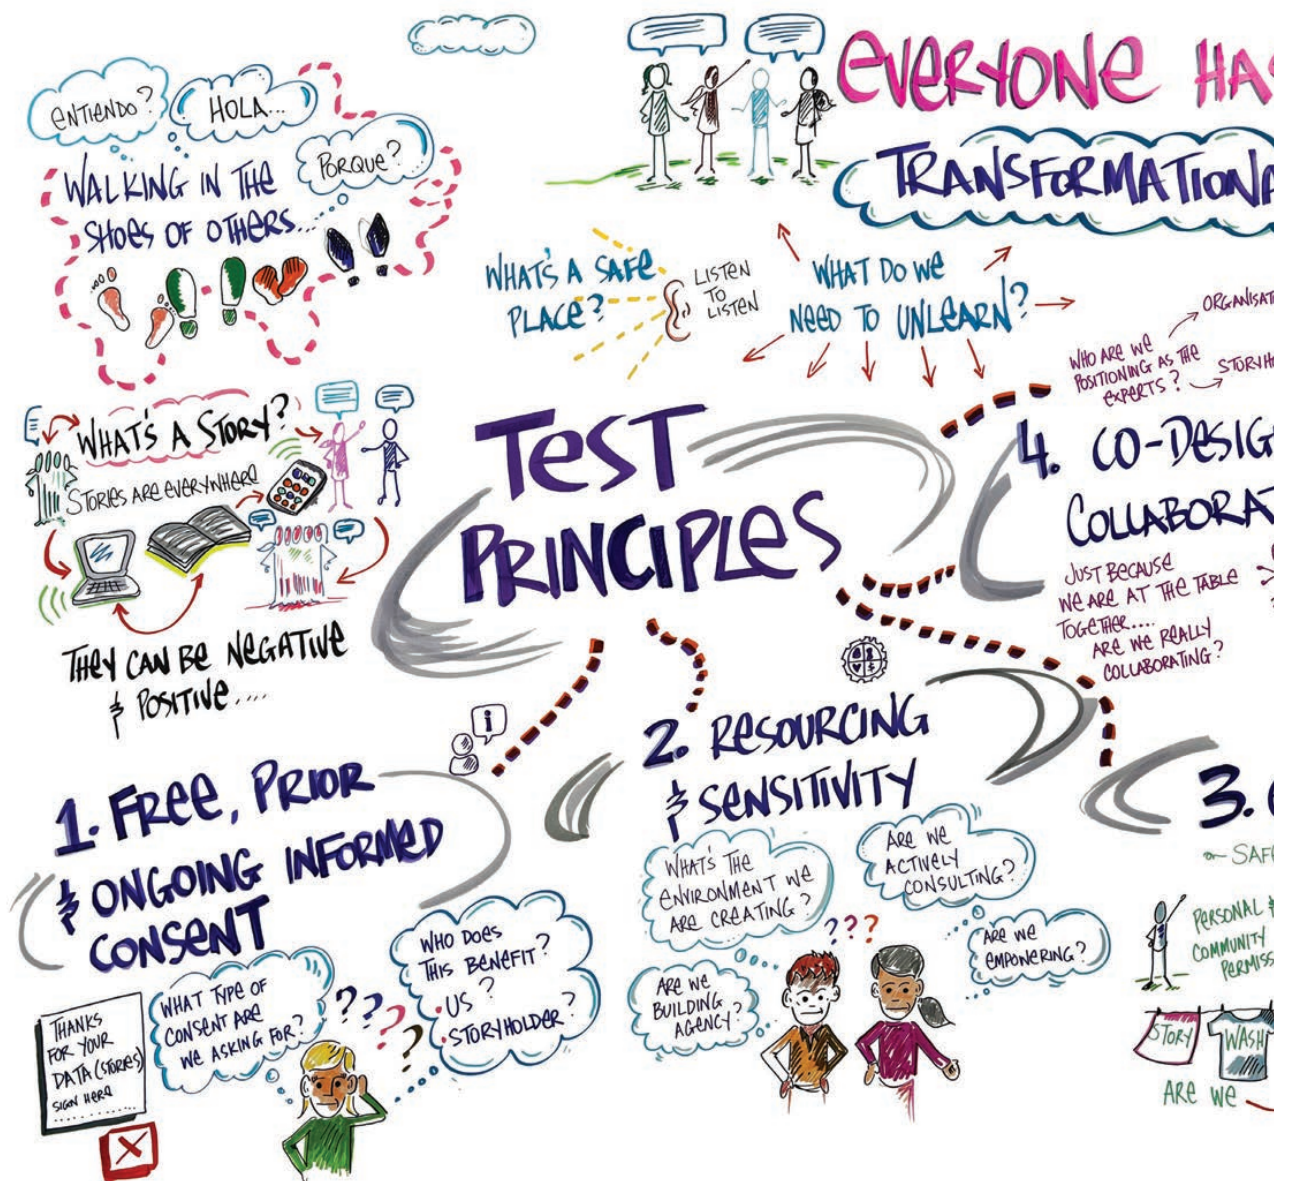 ENTIENDO?
HOLA...
PORQUE?
WALKING IN THE
SHOES OF OTHERS...
EVERYONE HAS
TRANSFORMATIONA
WHAT'S A SAFE
PLACE?
LISTEN
TO
LISTEN
WHAT DO WE
NEED TO UNLEARN?
WHO ARE WE
POSITIONING AS THE
EXPERTS?
ORGANISAT
STORYH
WHAT'S A STORY?
STORIES ARE EVERYWHERE
THEY CAN BE NEGATIVE
& POSITIVE....
TEST
PRINCIPLES
4. CO-DESIG
COLLABORAT
JUST BECAUSE
WE ARE AT THE TABLE
TOGETHER....
ARE WE REALLY
COLLABORATING?
i
1. FREE, PRIOR
& ONGOING INFORMED
CONSENT
THANKS
FOR YOUR
DATA (STORIES)
SIGN HERE
WHAT TYPE OF
CONSENT ARE
WE ASKING FOR?
???
??
WHO DOES
THIS BENEFIT?
• US?
• STORYHOLDER?
2. RESOURCING
& SENSITIVITY
WHAT'S THE
ENVIRONMENT WE
ARE CREATING?
ARE WE
ACTIVELY
CONSULTING?
ARE WE
BUILDING
AGENCY?
???
ARE WE
EMPOWERING?
3.
PERSONAL &
COMMUNITY
PERMISS
STORY
WASH
ARE WE